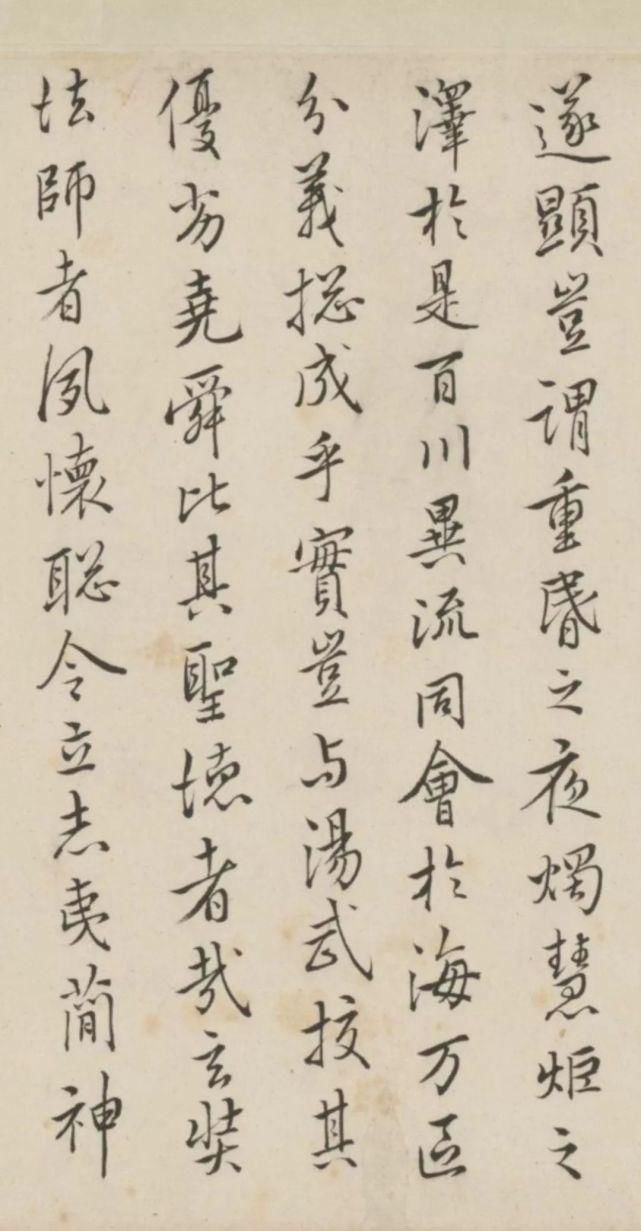 遂顯豈謂重昏之夜燭慧炬之
澤於是百川異流同會於海万區
分義揔成乎實豈与湯武挍其
優劣堯舜比其聖德者哉玄奘
法師者夙懷聡令立志夷簡神